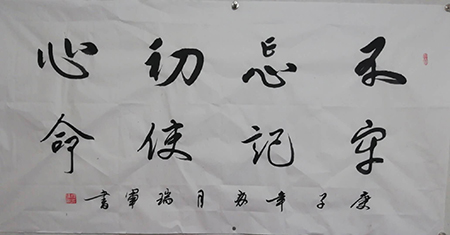 不忘初心
牢记使命
庚子年月瑞軍書